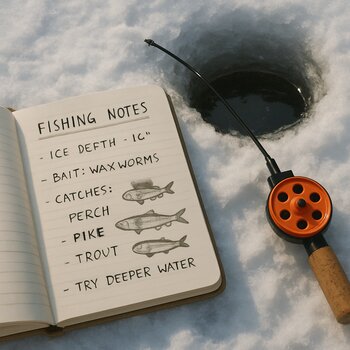 FISHING NOTES
- ICE DEFTH - 16"
- BAIT: WAX WORMS
- CATCHES:
PERCH
- PIKE
- TROUT
- TRY DEEPER WATER